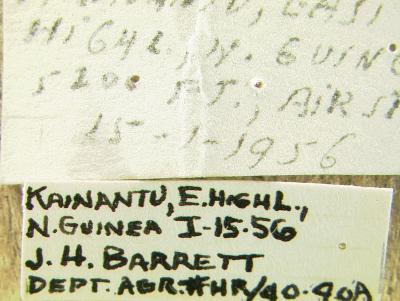 HIGHL., N. GUINE
5200 FT., AIR ST
15-1-1956
KAINANTU, E. HIGHL.,
N. GUINEA I-15-56
J. H. BARRETT
DEPT. AGR. #HR/40-40A